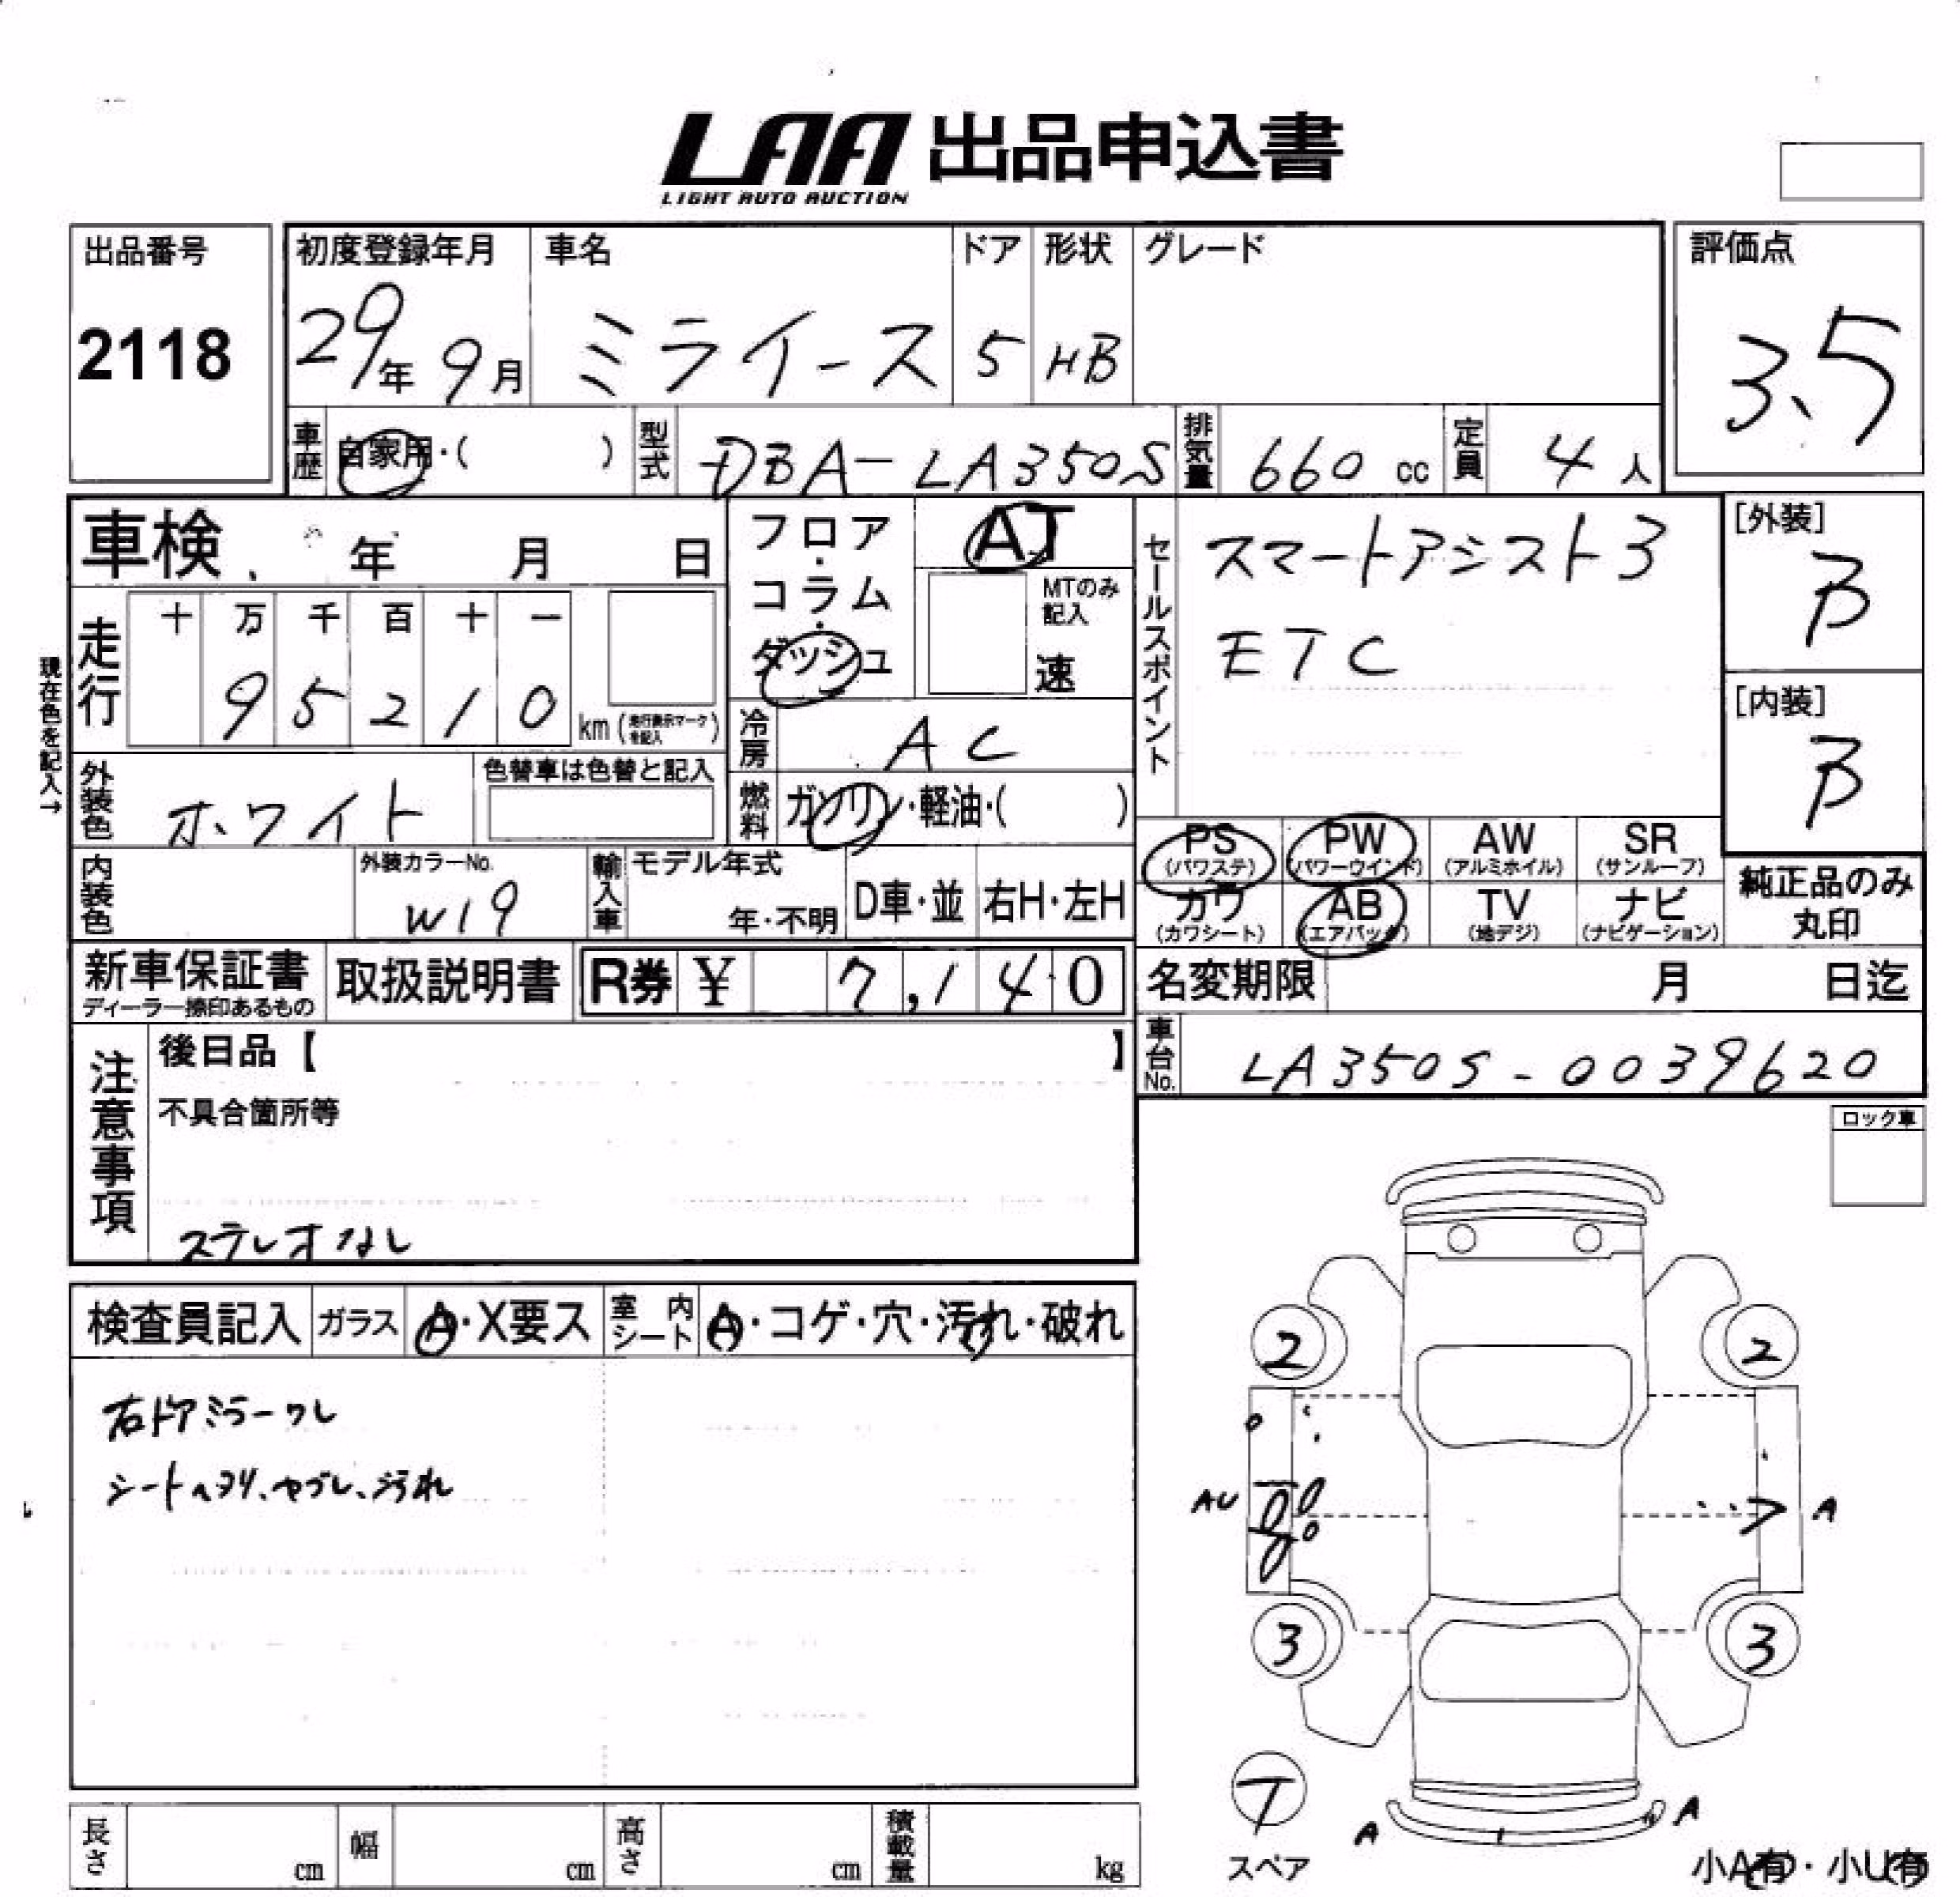 LAA 出品申込書
LIGHT AUTO AUCTION
出品番号
2118
初度登録年月
29年 9月
車名
ミライース
ドア
5
形状
HB
グレード
評価点
3.5
車歴
自家用・( )
型式
DBA-LA350S
排気量
660 cc
定員
4 人
車検 年 月 日
現在色を記入→
走行
十 万 千 百 十 一
9 5 2 1 0 km (走行表示マークを記入)
フロア・コラム・ダッシュ
AT
MTのみ記入
速
冷房
AC
燃料
ガソリン・軽油・( )
セールスポイント
スマートアシスト3
ETC
[外装]
B
[内装]
B
外装色
ホワイト
色替車は色替と記入
内装色
外装カラーNo.
W19
輸入車
モデル年式
年・不明
D車・並
右H・左H
PS
(パワステ)
PW
(パワーウインド)
AW
(アルミホイル)
SR
(サンルーフ)
カワ
(カワシート)
AB
(エアバック)
TV
(地デジ)
ナビ
(ナビゲーション)
純正品のみ
丸印
新車保証書
ディーラー捺印あるもの
取扱説明書
R券 ¥ 7,140
名変期限 月 日迄
車台No.
LA350S-0039620
注意事項
後日品【 】
不具合箇所等
ステレオなし
ロック車
検査員記入
ガラス
A・X要ス
室内シート
A・コゲ・穴・汚れ・破れ
右ドアミラーワレ
シートヘタリ、ヤブレ、汚れ
2
2
AU
A
3
3
T
スペア
A
A
小A有・小U有
長さ cm
幅 cm
高さ cm
積載量 kg